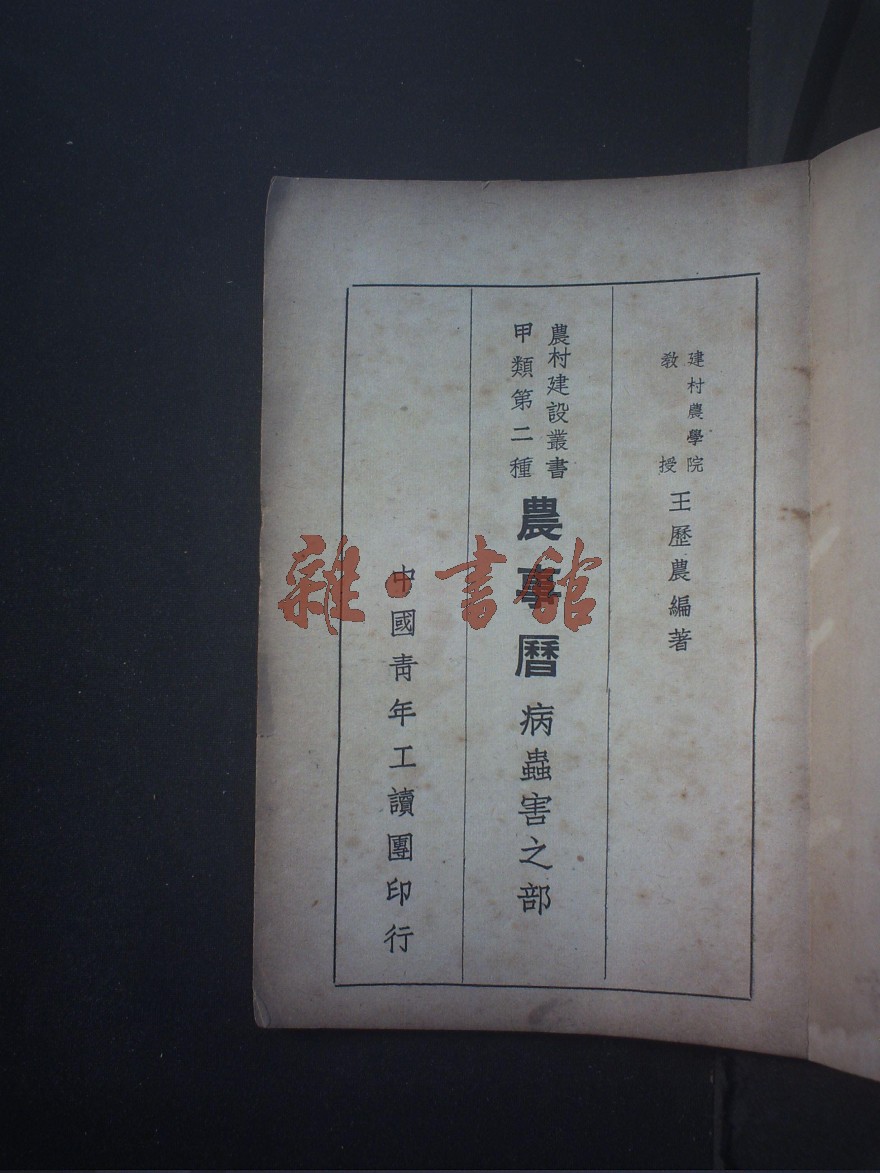 建村農學院
教授
王歷農編著
農村建設叢書
甲類第二種
農事曆 病蟲害之部
中國青年工讀團印行
雜·書館